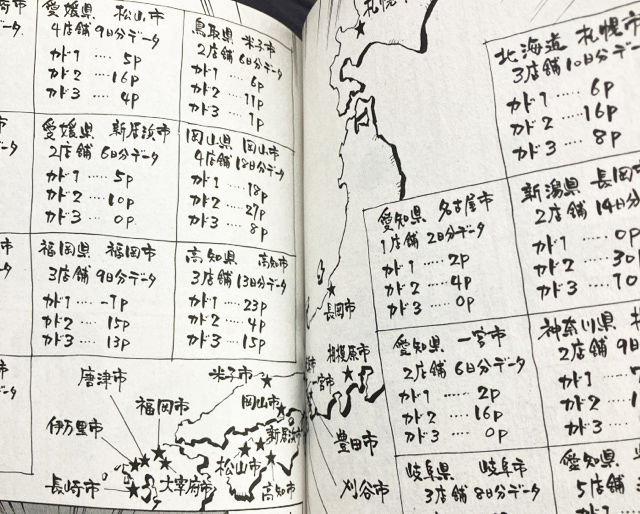 愛媛県 松山市
4店舗 9日分データ
カド1 ‥‥ 5P
カド2 ‥‥ 16P
カド3 ‥‥ 4P
鳥取県 米子市
2店舗 6日分データ
カド1 ‥‥ 6P
カド2 ‥‥ 11P
カド3 ‥‥ 1P
愛媛県 新居浜市
2店舗 6日分データ
カド1 ‥‥ 5P
カド2 ‥‥ 10P
カド3 ‥‥ 0P
岡山県 岡山市
4店舗 18日分データ
カド1 ‥‥ 18P
カド2 ‥‥ 27P
カド3 ‥‥ 8P
福岡県 福岡市
3店舗 9日分データ
カド1 ‥‥ -7P
カド2 ‥‥ 15P
カド3 ‥‥ 13P
高知県 高知市
3店舗 13日分データ
カド1 ‥‥ 23P
カド2 ‥‥ 4P
カド3 ‥‥ 15P
唐津市
米子市
福岡市
岡山市
伊万里市
新居浜市
松山市
長崎市
大宰府市
高知市
札幌市
長岡市
相模原市
一宮市
豊田市
刈谷市
北海道 札幌市
3店舗 10日分デー
カド1 ‥‥ 6P
カド2 ‥‥ 16P
カド3 ‥‥ 8P
愛知県 名古屋市
1店舗 2日分データ
カド1 ‥‥ 2P
カド2 ‥‥ 4P
カド3 ‥‥ 0P
新潟県 長岡市
2店舗 14日分
カド1 ‥‥ 0P
カド2 ‥‥ 30P
カド3 ‥‥
愛知県 一宮市
2店舗 6日分データ
カド1 ‥‥ 2P
カド2 ‥‥ 16P
カド3 ‥‥ 0P
神奈川県
2店舗 9日
カド1 ‥‥
カド2 ‥‥
カド3 ‥‥
岐阜県 岐阜市
3店舗 8日分データ
愛知県
5店舗